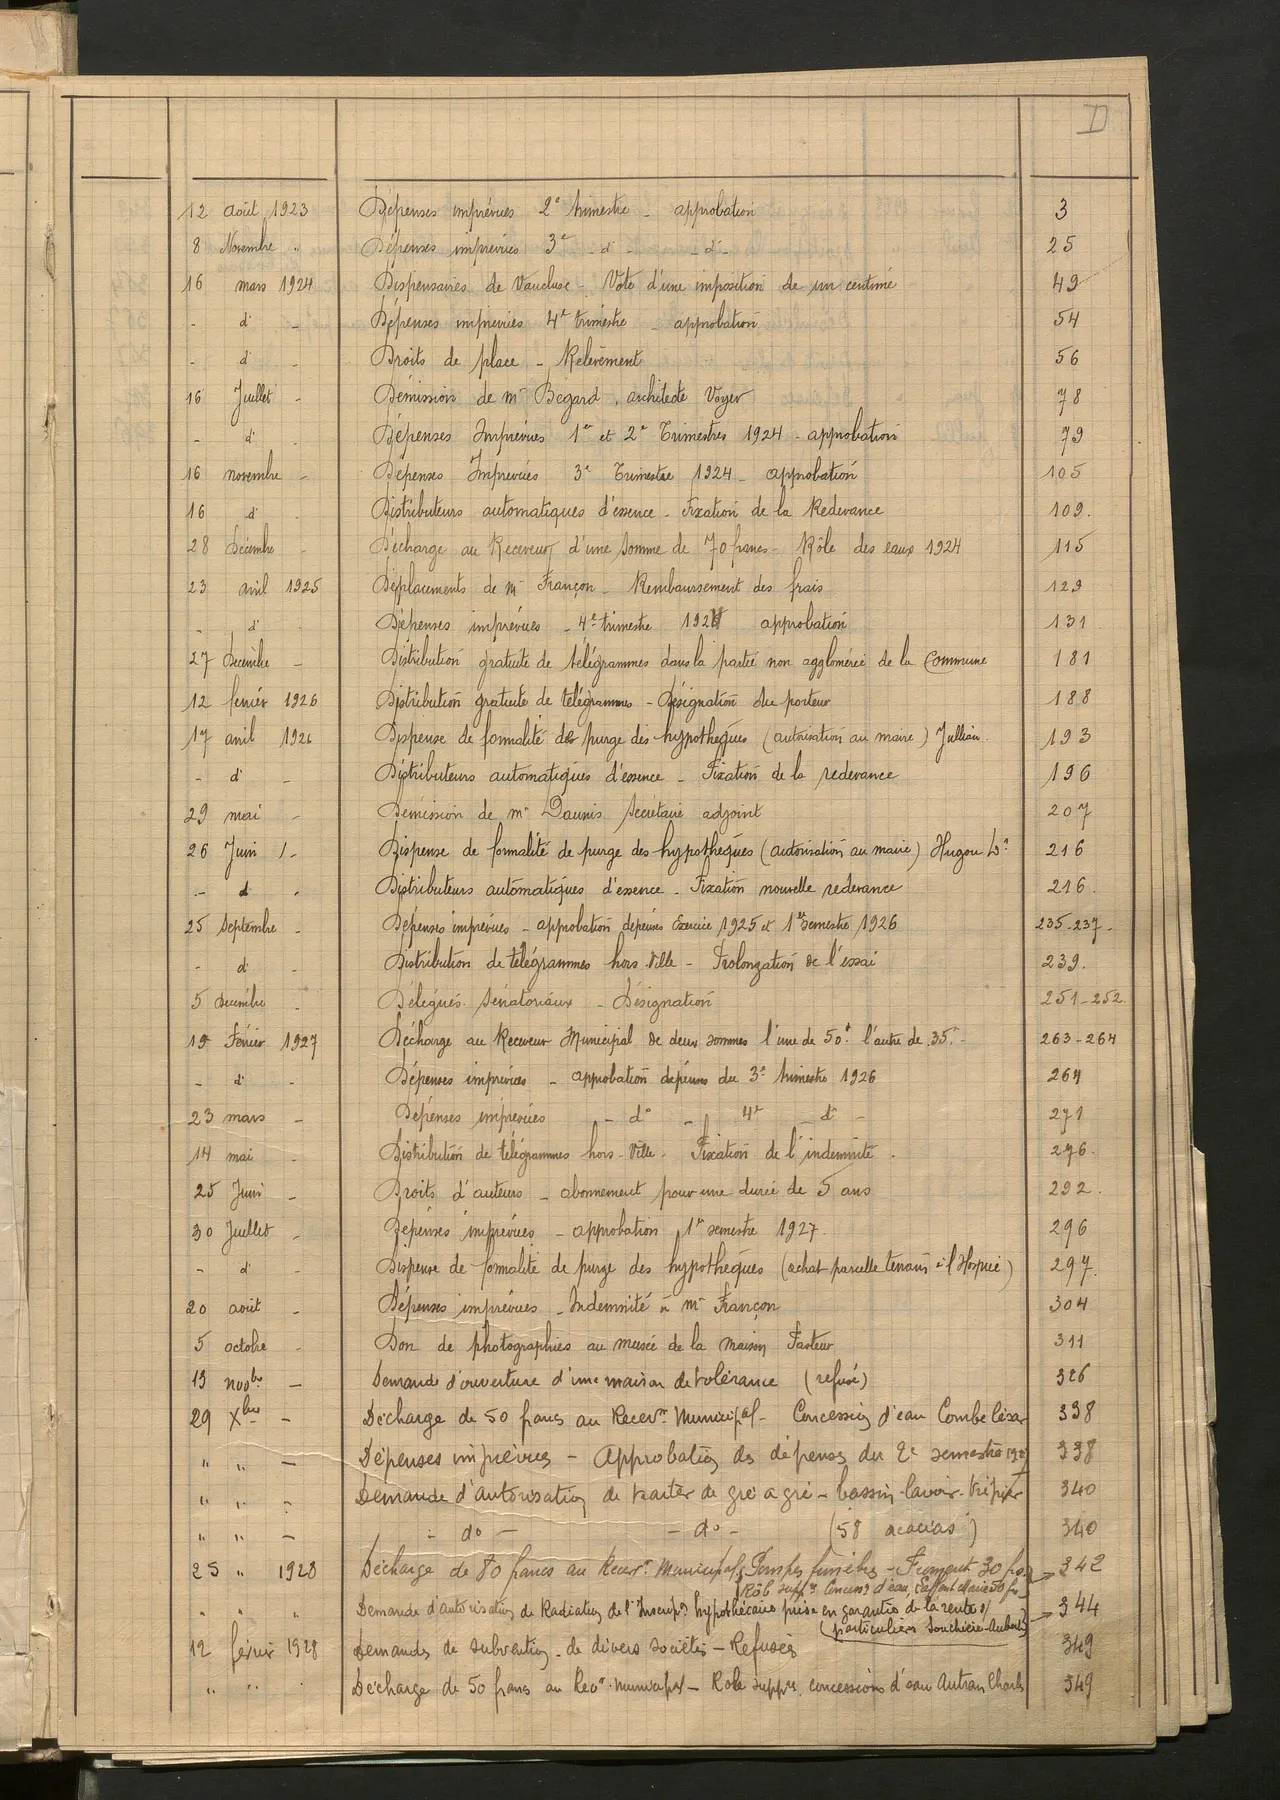 D
12 août 1923 Dépenses imprévues 2e trimestre - approbation 3
8 Novembre " Dépenses imprévues 3e - d° - - d° - 25
16 mars 1924 Dispensaires de Vaucluse - Vote d'une imposition de un centime 49
- d° - Dépenses imprévues 4e trimestre - approbation 54
- d° - Droits de place - Relèvement 56
16 Juillet - Démission de Mr Bégard, architecte Voyer 78
- d° - Dépenses Imprévues 1er et 2e Trimestres 1924 - approbation 79
16 novembre - Dépenses Imprévues 3e Trimestre 1924 - approbation 105
16 d° - Distributeurs automatiques d'essence - Fixation de la Redevance 109.
28 Décembre - Décharge au Receveur d'une somme de 70 francs - Rôle des eaux 1924 115
23 avril 1925 Déplacements de Mr Françon - Remboursement des frais 129
- d° - Dépenses imprévues - 4e trimestre 1924 approbation 131
27 Décembre - Distribution gratuite de télégrammes dans la partie non agglomérée de la Commune 181
12 février 1926 Distribution gratuite de télégrammes - Désignation du porteur 188
17 avril 1926 Dispense de formalité de purge des hypothèques (autorisation au maire) Jullian. 193
- d° - Distributeurs automatiques d'essence - Fixation de la redevance 196
29 mai - Démission de Mr Daunis Secrétaire adjoint 207
26 Juin - Dispense de formalité de purge des hypothèques (autorisation au maire) Hugou 216
- d° - Distributeurs automatiques d'essence - Fixation nouvelle redevance 216.
25 Septembre - Dépenses imprévues - approbation dépenses Exercice 1925 et 1er semestre 1926 235-237-
- d° - Distribution de télégrammes hors-Ville - Prolongation de l'essai 239.
5 Décembre - Délégués Sénatoriaux - Désignation 251-252.
19 Février 1927 Décharge au Receveur Municipal de deux sommes l'une de 50f l'autre de 35f - 263-264
- d° - Dépenses imprévues - approbation dépenses du 3e trimestre 1926 264
23 mars - Dépenses imprévues - d° - 4e d° - 271
14 mai - Distribution de télégrammes hors-Ville - Fixation de l'indemnité. 276.
25 Juin - Droits d'auteurs - abonnement pour une durée de 5 ans 292.
30 Juillet - Dépenses imprévues - approbation 1er semestre 1927. 296
- d° - Dispense de formalité de purge des hypothèques (achat parcelle tenant à l'Hospice) 297.
20 août - Dépenses imprévues - Indemnité à Mr Françon 304
5 octobre - Don de photographies au musée de la maison Pasteur 311
13 novbre - Demande d'ouverture d'une maison de tolérance (refusé) 326
29 Xbre - Décharge de 50 francs au Recevr Municipal - Concession d'eau Combe César 338
" " - Dépenses imprévues - Approbation des dépenses du 2e semestre 1927 338
" " - Demande d'autorisation de traiter de gré à gré - bassin-lavoir-tripier 340
" " - - d° - - d° - (58 acacias) 340
25 " 1928 Décharge de 80 francs au Recevr Municipal, Pompes funèbres - Froment 30 frs 342
Rôle supp. Concess. d'eau 50 fr
" " Demande d'autorisation de Radiation de l'Inscripon hypothécaire prise en garantie de la rente s/ 344
particuliers Souchière-Aubert
12 février 1928 Demandes de subvention de divers sociétés - Refusés 349
" " Décharge de 50 francs au Recr municipal - Role supp. concessions d'eau Autran Charles 349